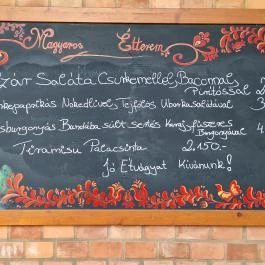 Magyaros Étterem
zár Saláta Csirkemellel, Baconnal
Pirítóssal 2
kepaprikás Nokedlivel, Tejfölös Uborkasalátával 3
sburgonyás Bundába sült sertés Karaj, fűszeres
Burgonyával 4.
Tiramisu Palacsinta 2.150.-
Jó Étvágyat Kívánunk!